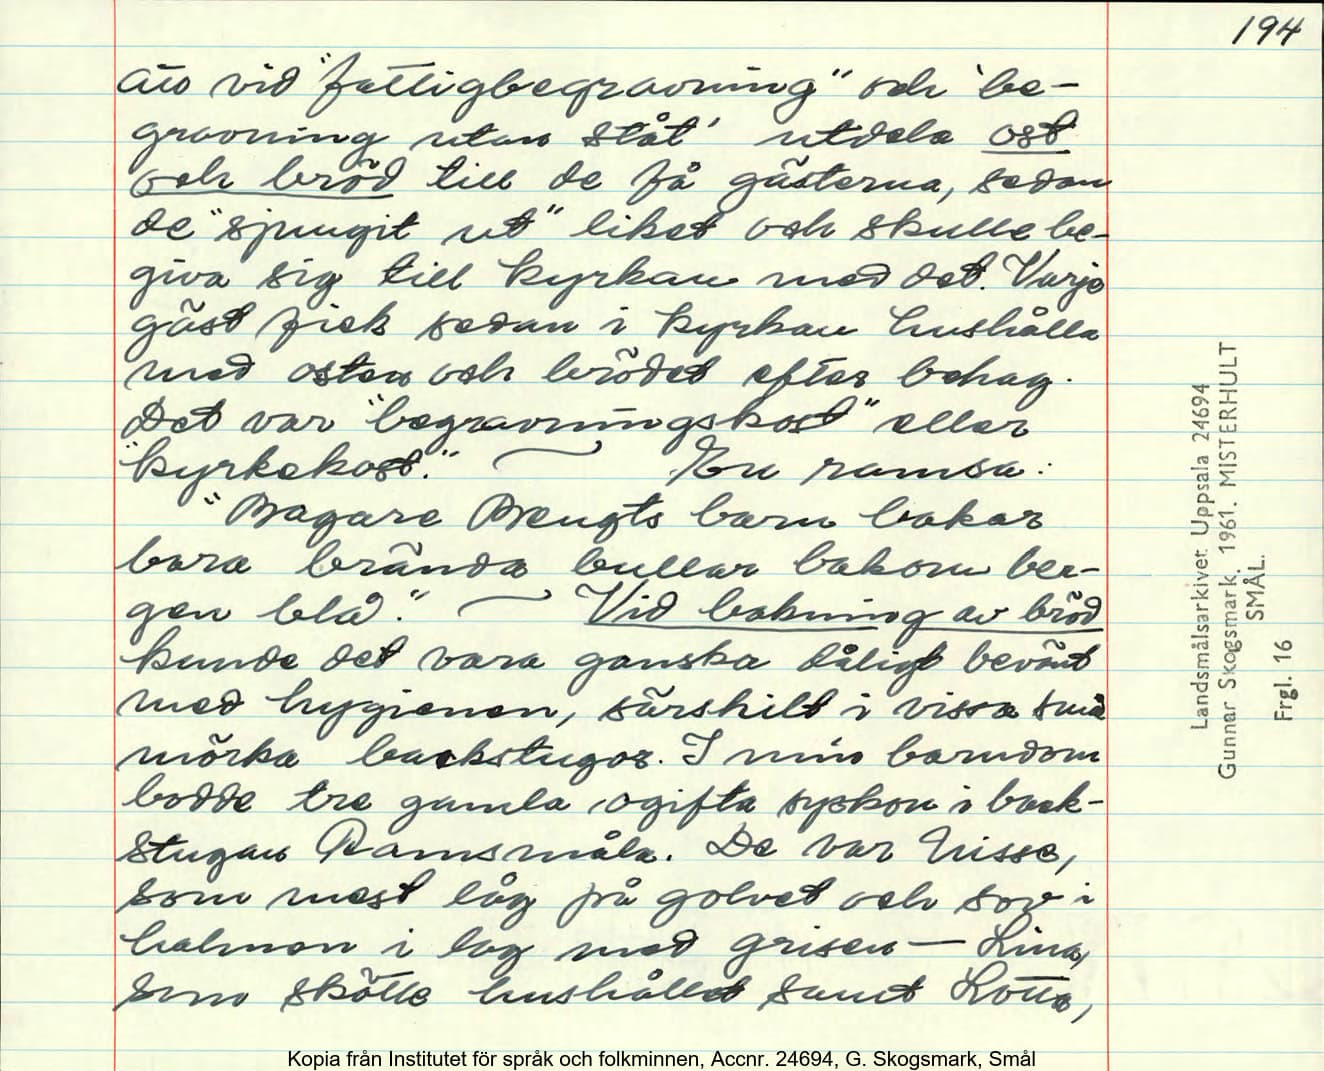 194
att vid "fattigbegravning" och 'be-
gravning utan ståt' utdela ost
och bröd till de få gästerna, sedan
de "sjungit ut" liket och skulle be-
giva sig till kyrkan med det. Varje
gäst fick sedan i kyrkan hushålla
med osten och brödet efter behag.
Det var "begravningskost" eller
"kyrkekost." — En ramsa:
"Bagare Bengts barn bakar
bara brända bullar bakom ber-
gen blå." — Vid bakning av bröd
kunde det vara ganska dåligt bevänt
med hygienen, särskilt i vissa små
mörka backstugor. I min barndom
bodde tre gamla ogifta syskon i back-
stugan Ramsmåla. De var Nisse,
som mest låg på golvet och sov i
halmen i lag med grisen — Lina,
som skötte hushållet samt Lotta,
Landsmålsarkivet Uppsala 24694
Gunnar Skogsmark. 1961. MISTERHULT
SMÅL.
Frgl. 16
Kopia från Institutet för språk och folkminnen, Accnr. 24694, G. Skogsmark, Smål